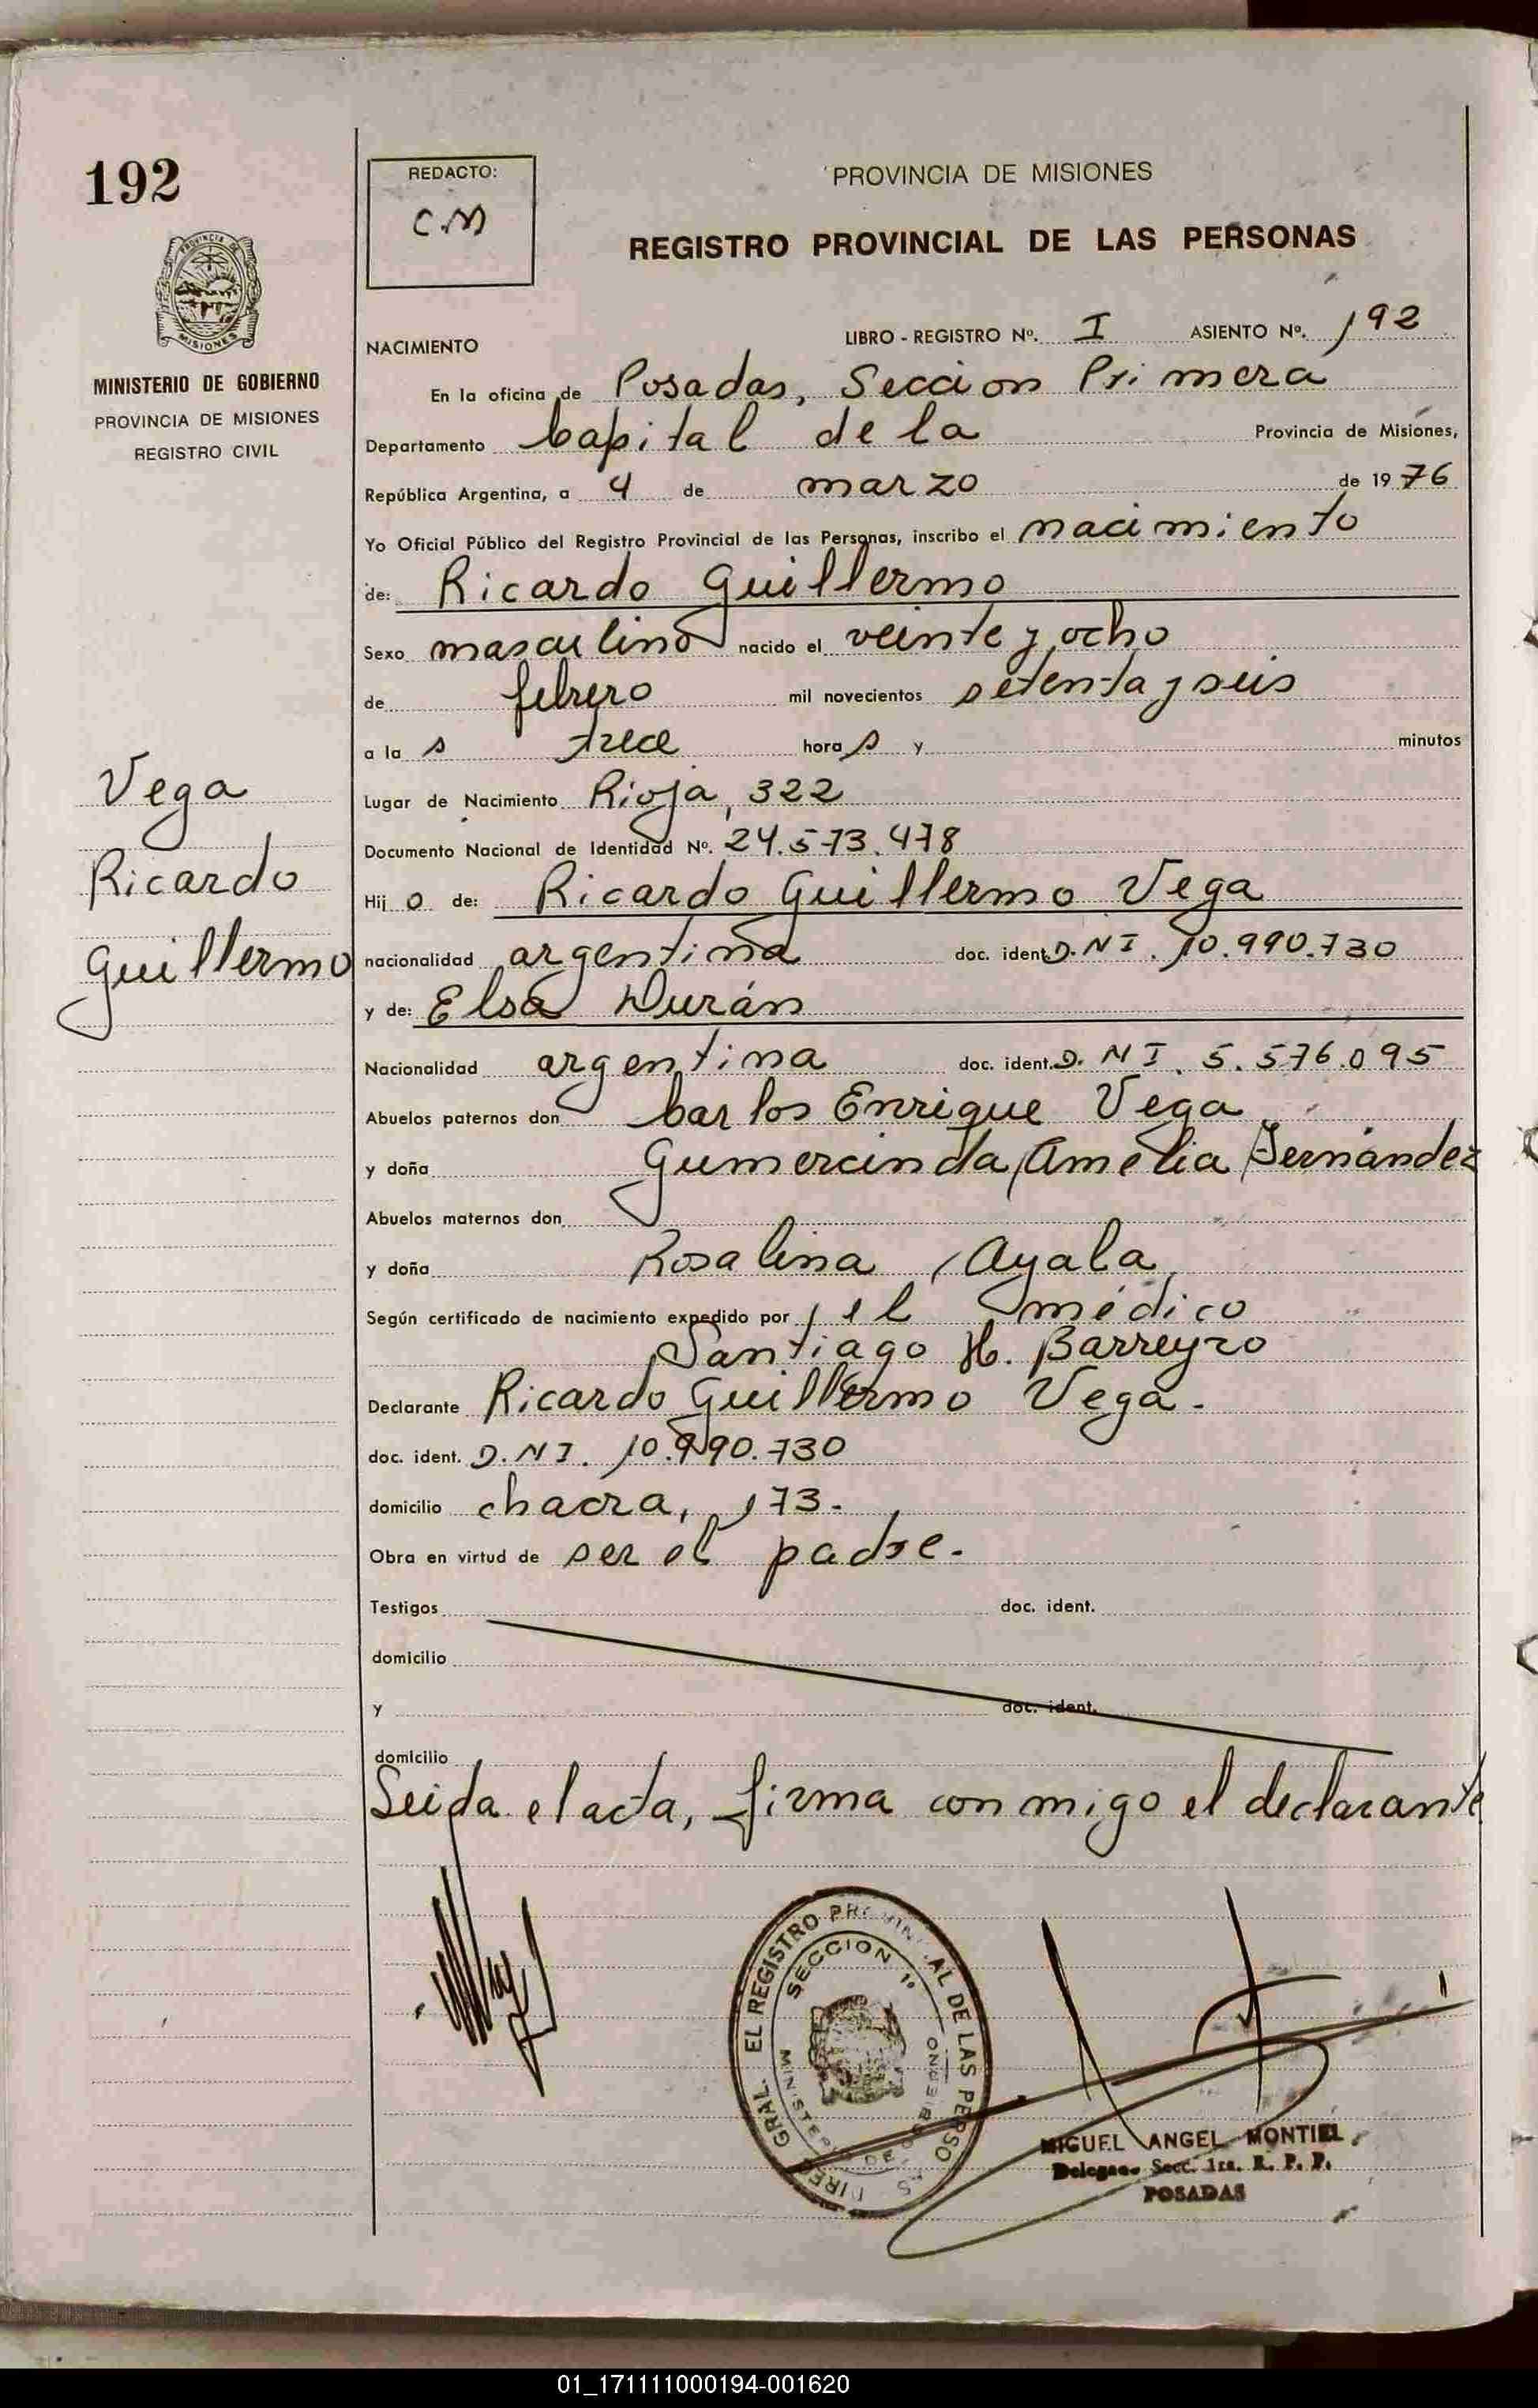 192
REDACTO:
C.M
PROVINCIA DE MISIONES
REGISTRO PROVINCIAL DE LAS PERSONAS
PROVINCIA DE
MISIONES
MINISTERIO DE GOBIERNO
PROVINCIA DE MISIONES
REGISTRO CIVIL
NACIMIENTO LIBRO - REGISTRO Nº. I ASIENTO Nº. 192
En la oficina de Posadas, Seccion Primera
Departamento Capital de la Provincia de Misiones,
República Argentina, a 4 de marzo de 1976
Yo Oficial Público del Registro Provincial de las Personas, inscribo el nacimiento
de: Ricardo Guillermo
Sexo masculino nacido el veinte y ocho
de febrero mil novecientos setenta y seis
a la s trece hora s y minutos
Lugar de Nacimiento Rioja, 322
Documento Nacional de Identidad Nº. 24.573.478
Hij o de: Ricardo Guillermo Vega
nacionalidad argentina doc. ident. D.NI. 10.990.730
y de: Elsa Durán
Nacionalidad argentina doc. ident. D.NI. 5.576.095
Abuelos paternos don Carlos Enrique Vega
y doña Gumercinda Amelia Fernández
Abuelos maternos don
y doña Rosalina Ayala
Según certificado de nacimiento expedido por el médico
Santiago H. Barreyro
Declarante Ricardo Guillermo Vega.
doc. ident. D.NI. 10.990.730
domicilio chacra, 173.
Obra en virtud de ser el padre.
Testigos doc. ident.
domicilio
y doc. ident.
domicilio
Leida el acta, firma conmigo el declarante
Vega
Ricardo
Guillermo
GRAL. EL REGISTRO PROVINCIAL DE LAS PERSO
SECCION 1º
MINISTERIO DE GOBIERNO
MIGUEL ANGEL MONTIEL
Delegado Secc. 1ra. R. P. P.
POSADAS
01_171111000194-001620